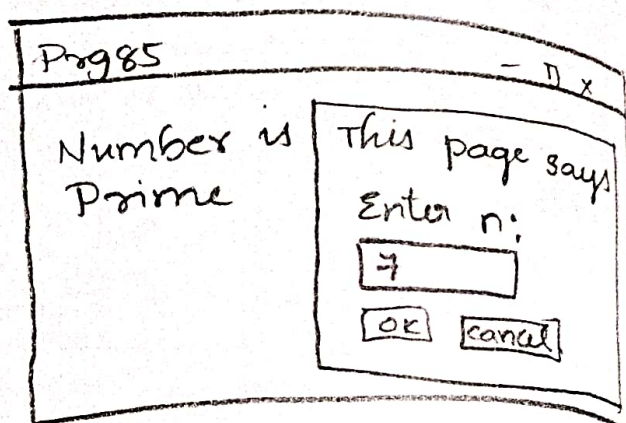 Prg85
Number is
Prime
This page says
Enter n:
7
OK cancel